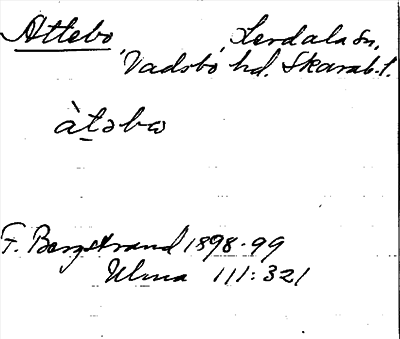 Attebo, Lerdala sn,
Vadsbo hd. Skarab. l.
àt̲əbɷ
F. Bergstrand 1898-99
Ulma 111:321